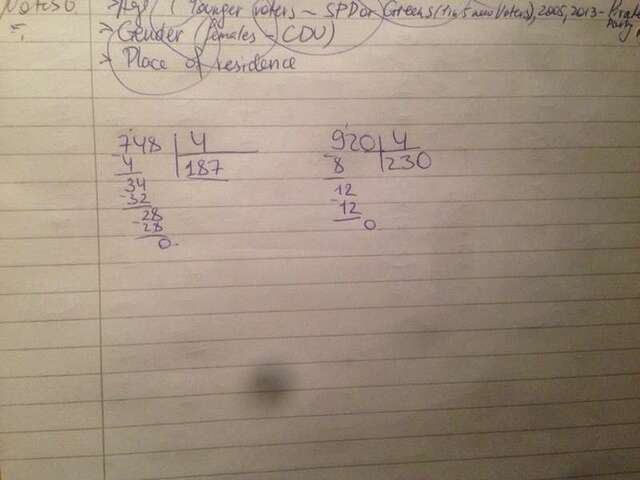 (Younger voters ~ SPD or Greens (1 in 5 new Voters), 2005, 2013 - Pirate Party
> Gender (females - CDU)
> Place of residence
748 4
4 187
34
-32
28
-28
0
920 4
8 230
12
-12
0